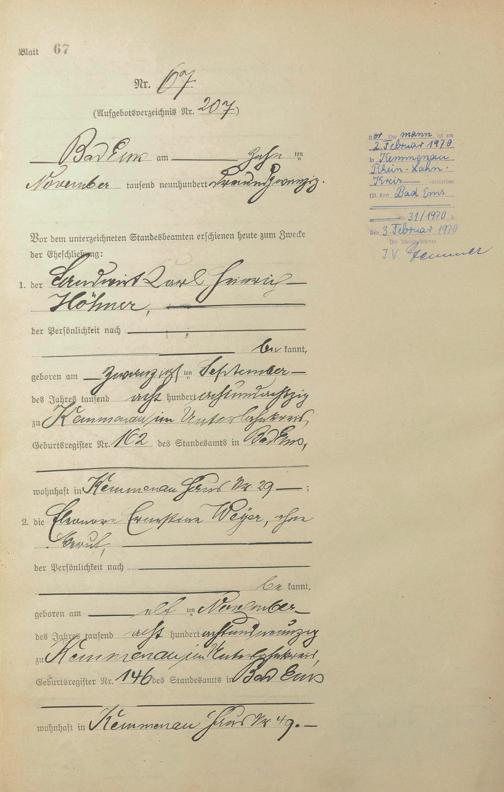 Blatt 67
Nr. 67.
(Aufgebotsverzeichnis Nr. 207)
Bad Ems am zehnten
November tausend neunhundert dreiundzwanzig.
Vor dem unterzeichneten Standesbeamten erschienen heute zum Zwecke
der Eheschließung:
1. der Landwirt Karl Heinrich
Höhner,
der Persönlichkeit nach
bekannt,
geboren am zwanzigsten September
des Jahres tausend acht hundert achtundachtzig
zu Kemmenau im Unterlahnkreis,
Geburtsregister Nr. 162 des Standesamts in Bad Ems,
wohnhaft in Kemmenau Haus Nr 29 ;
2. die Eleonore Ernestine Weyer, ohne
Beruf,
der Persönlichkeit nach
bekannt,
geboren am elften November
des Jahres tausend acht hundert achtundneunzig
zu Kemmenau im Unterlahnkreis,
Geburtsregister Nr. 146 des Standesamts in Bad Ems
wohnhaft in Kemmenau Haus Nr 49.
Der Ehemann ist am
2. Februar 1970
in Kemmenau
Rhein-Lahn-
Kreis
Bad Ems
31/1970
Den 3. Februar 1970
Der Standesbeamte
I.V.